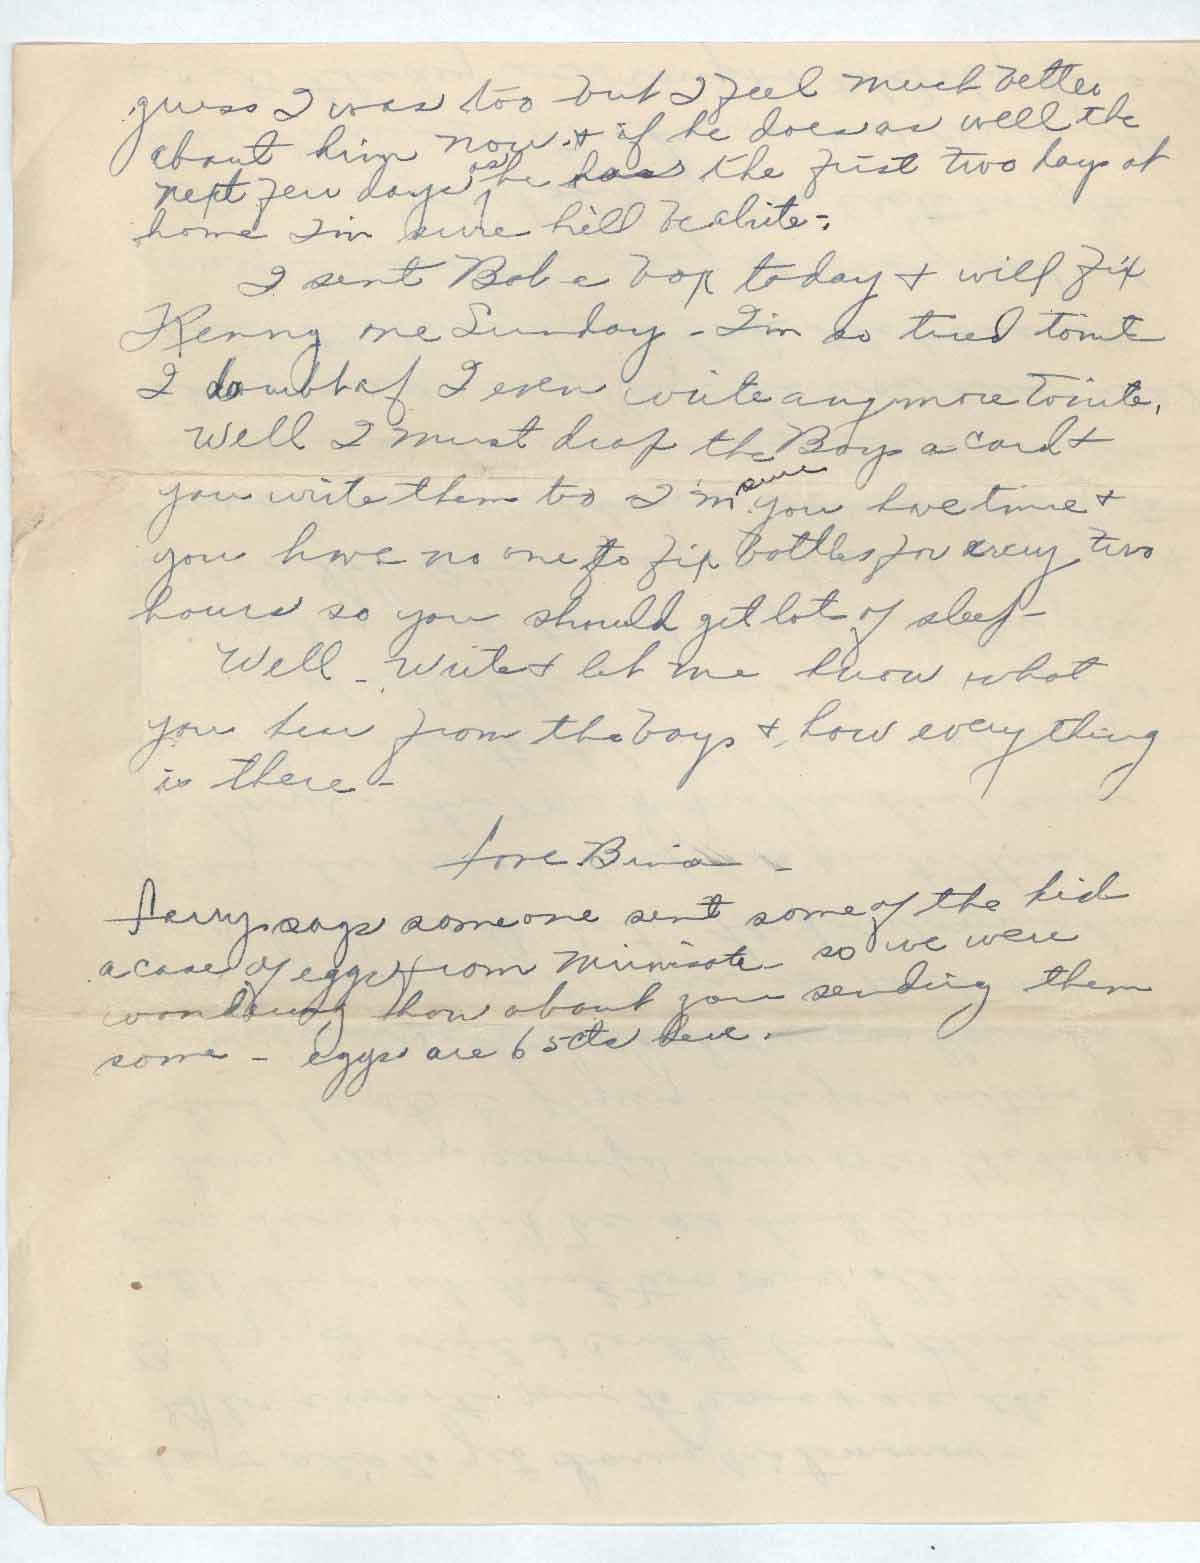 guess I was too but I feel much better
about him now. & if he does as well the
next few days as he has the first two days at
home I'm sure he'll be alrite -
I sent Bob a box today & will fix
Kenny one Sunday - I'm so tired tonite
I doubt if I even write anymore tonite.
Well I must drop the Boys a card &
you write them too I'm sure you have time &
you have no one to fix bottles for every two
hours so you should get lot of sleep -
Well - write & let me know what
you hear from the boys & how everything
is there -
Love
says someone sent some of the kids
a case of eggs from so we were
wondering how about you sending them
some - eggs are 65cts here.